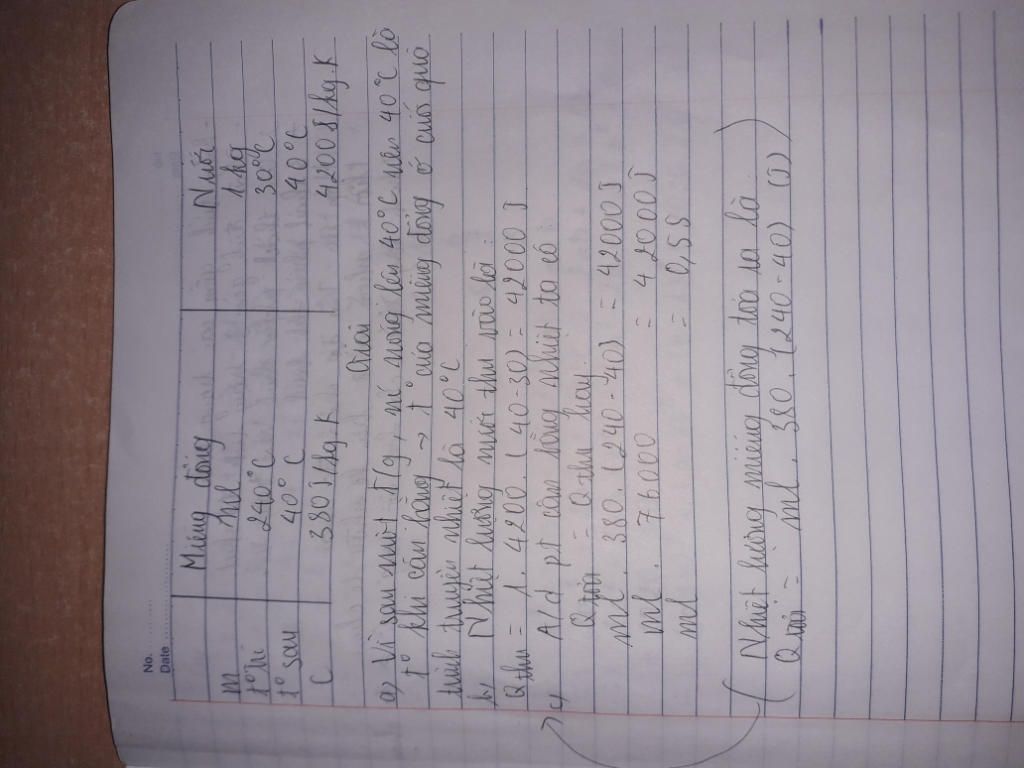 No. ............
Date ............
Miếng đồng Nước
m m1 1 kg
t° trc 240°C 30°C
t° sau 40°C 40°C
C 380 J/kg.K 4200 J/kg.K
Giải
a) Vì sau một t/g, nc nóng lên 40°C nên 40°C là
t° khi cân bằng → t° của miếng đồng ở cuối quá
trình truyền nhiệt là 40°C
b) Nhiệt lượng nước thu vào là:
Q thu = 1. 4200. (40-30) = 42000 J
c) A/d pt cân bằng nhiệt ta có:
Q tỏa = Q thu hay
m1. 380. (240-40) = 42000 J
m1. 76000 = 42000 J
m1 = 0,55
( Nhiệt lượng miếng đồng tỏa ra là )
Q tỏa = m1. 380. (240-40) (J)